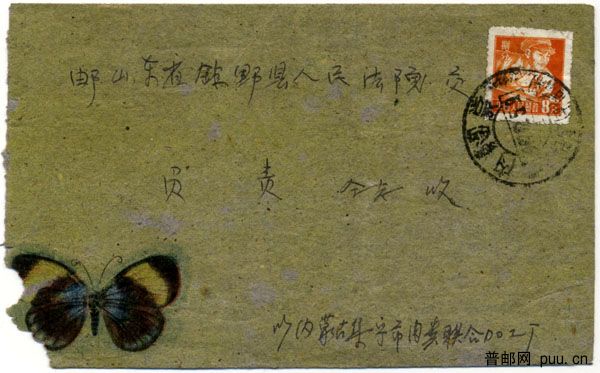 邮山东省钜野县人民法院 交
负 责 仝志 收
内蒙古集宁市肉类联合加工厂
8
普邮网 puu.cn